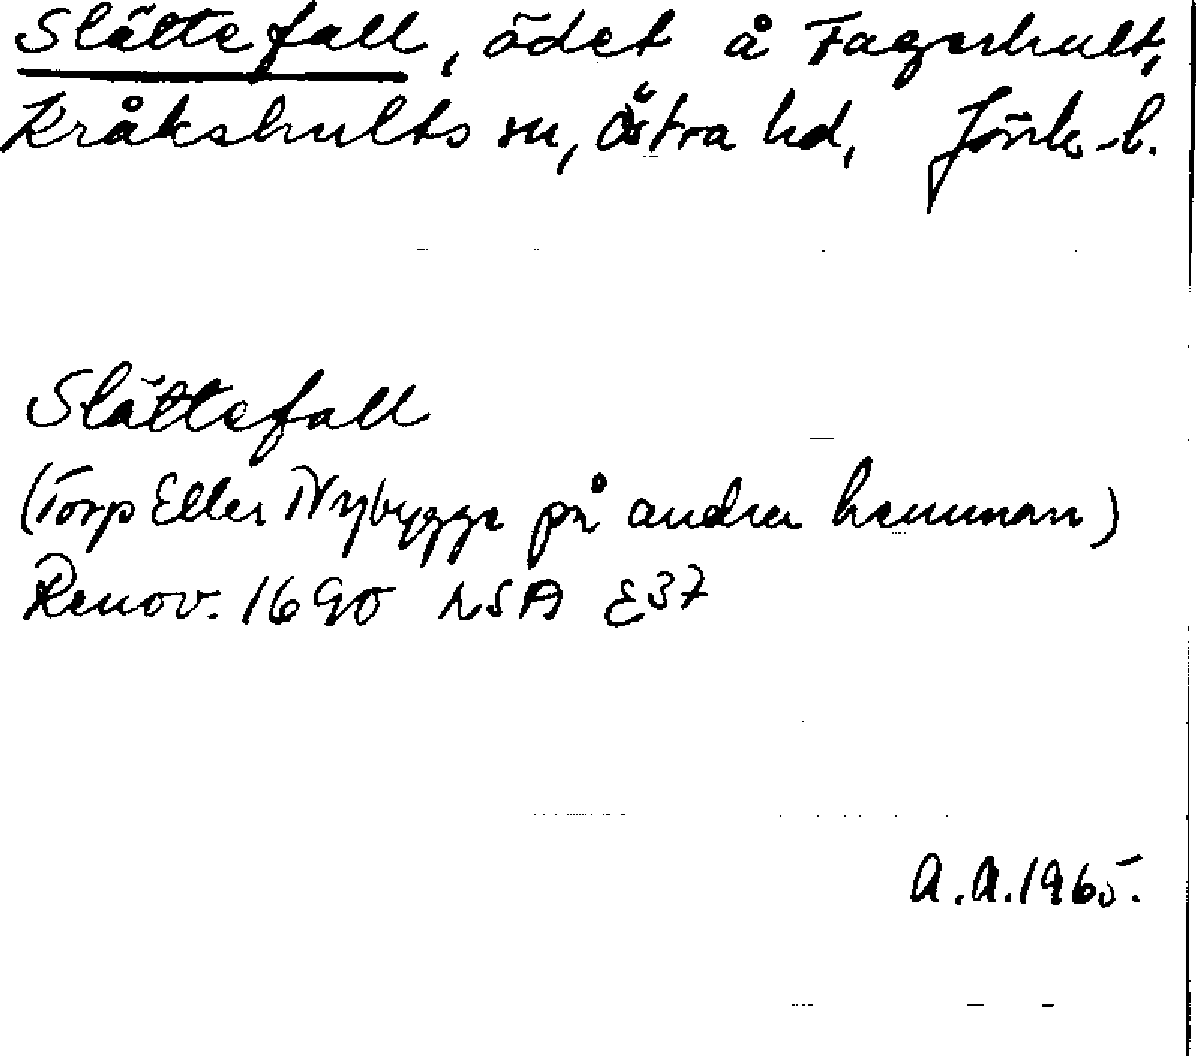 Slättefall, ödet å Fagerhult,
Kråkshults sn, Östra hd, Jönk. l.
Slättefall
(Torp Eller Nybygge på andra hemman)
Renov. 1690 LSA E37
A.A. 1965.